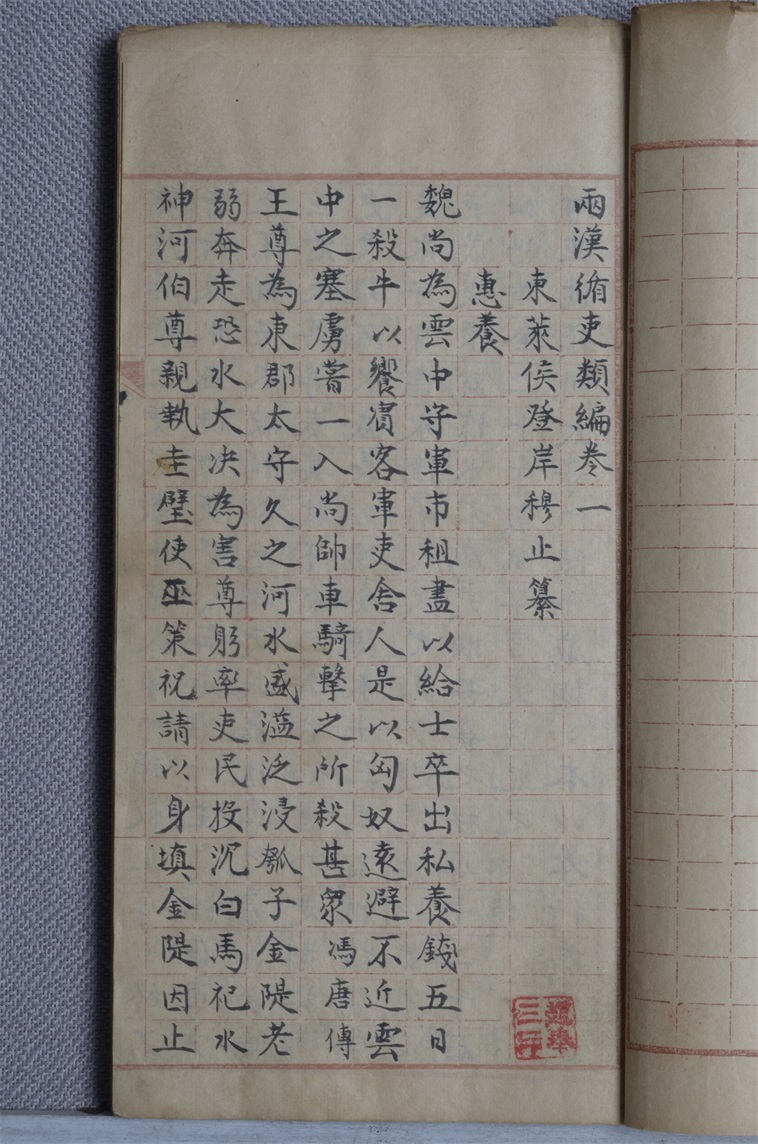 兩漢循吏類編卷一
東萊侯登岸穆止纂
惠養
魏尚為雲中守軍市租盡以給士卒出私養錢五日
一殺牛以饗賓客軍吏舍人是以匈奴遠避不近雲
中之塞虜嘗一入尚帥車騎擊之所殺甚眾馮唐傳
王尊為東郡太守久之河水盛溢泛浸瓠子金隄老
弱奔走恐水大決為害尊躬率吏民投沉白馬祀水
神河伯尊親執圭璧使巫策祝請以身填金隄因止